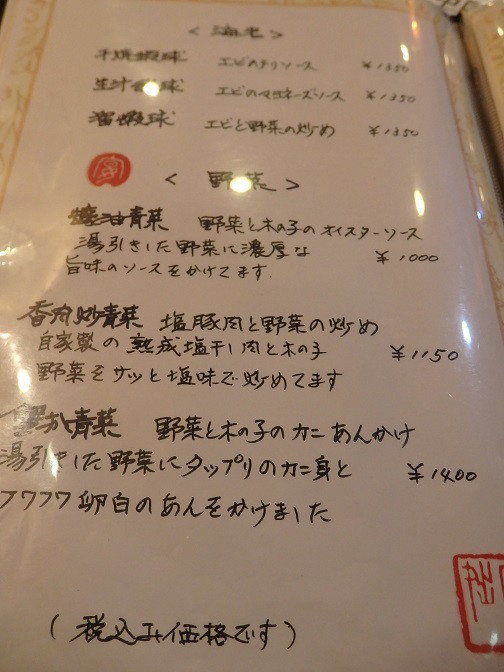 < 海老 >
干焼蝦球 エビのチリソース ¥1350
生汁蝦球 エビのマヨネーズソース ¥1350
溜蝦球 エビと野菜の炒め ¥1350
< 野菜 >
蠔油青菜 野菜と木の子のオイスターソース
湯引きした野菜に濃厚な ¥1000
旨味のソースをかけてます.
香肉炒青菜 塩豚肉と野菜の炒め
自家製の熟成塩干し肉と木の子 ¥1150
野菜をサッと塩味で炒めてます
扒青菜 野菜と木の子のカニあんかけ
湯引きした野菜にタップリのカニ身と ¥1400
フワフワ卵白のあんをかけました
(税込み価格です)